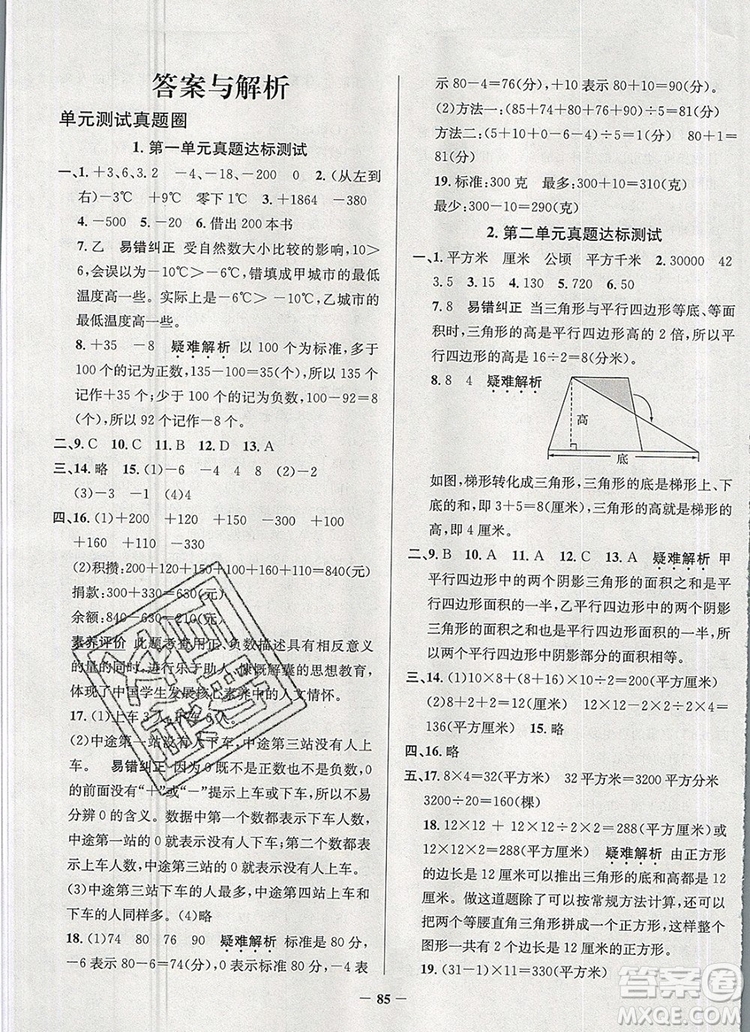 答案与解析
单元测试真题圈
1. 第一单元真题达标测试
一、1. +3,6,3.2　－4,－18,－200　0　2. (从左到
右)－3℃　+9℃　零下1℃　3. +1864　－380
4. －500　5. －20　6. 借出200本书
7. 乙　易错纠正　受自然数大小比较的影响,10＞
6,会误以为－10℃＞－6℃,错填成甲城市的最低
温度高一些。实际上是－6℃＞－10℃,乙城市的最
低温度高一些。
8. +35　－8　疑难解析　以100个为标准,多于
100个的记为正数,135－100＝35(个),所以135
个记作+35个;少于100个的记为负数,100－92＝8
(个),所以92个记作－8个。
二、9. C　10. C　11. A　12. D　13. A
三、14. 略　15. (1)－6　－4　4　7　(2)＞　＞　＜
(3)－3　－1　(4)4
四、16. (1)+200　+120　+150　－300　+100
+160　+110　－330
(2)积攒:200+120+150+100+160+110＝840(元)
捐款:300+330＝630(元)
余额:840－630＝210(元)
素养评价　此题考查用正、负数描述具有相反意义
的量的同时,进行乐于助人、慷慨解囊的思想教育,
体现了中国学生发展核心素养中的人文情怀。
17. (1)上车3
(2)中途第一站没有人下车,中途第三站没有人上
车。　易错纠正　因为0既不是正数也不是负数,0
的前面没有“+”或“－”号,所以有些同学可能无法
分辨0的含义。数据中第一个数都表示下车人数,
中途第一站是0,表示没有人下车。第二个数都表
示上车人数,中途第三站是0,表示没有人上车。
(3)中途第三站下车的人最多,中途第一站和第二
站上车的人同样多。(4)略
18. (1)74　80　76　90　疑难解析　标准是80分,
－6表示80－6＝74(分),0表示80分,－4表
示80－4＝76(分),+10表示80+10＝90(分)。
(2)方法一:(85+74+80+76+90)÷5＝81(分)
方法二:(5－6+0－4+10)÷5＝1(分)　80+1＝
81(分)
19. 标准:300克　最多:300+10＝310(克)
最少:300－10＝290(克)
2. 第二单元真题达标测试
一、1. 平方米　厘米　公顷　平方千米　2. 30000　42
3. 5　15　4. 130　5. 720　6. 50
7. 8　易错纠正　当三角形与平行四边形等底、等面
积时,三角形的高是平行四边形高的2倍,所以平
行四边形的高是16÷2＝8(分米)。
8. 8　4　疑难解析
高
底
如图,梯形转化成三角形,三角形的底是梯形的上、
下底的和,即3+5＝8(厘米),三角形的高是梯形的
高,即4厘米。
二、9. B　10. A　11. C　12. B　13. A　疑难解析　甲
平行四边形中的两个阴影三角形的面积之和是平行
四边形面积的一半,乙平行四边形中的两个阴影三角
形的面积之和也是平行四边形面积的一半,所以两个
平行四边形中阴影部分的面积一样大。
三、14. (1)10×5+(8+16)×10÷2＝170(平方厘米)
(2)8+2+2＝12(厘米)　12×12－2×2÷2×4＝
136(平方厘米)　15. 略
四、16. 略
五、17. 8×4＝32(平方千米)　32平方千米＝3200平方百米
18. 12×12+12×12＝288(平方厘米)
19. (31－1)×11＝330(平方厘米)
— 85 —
答案圈
MXQE.COM